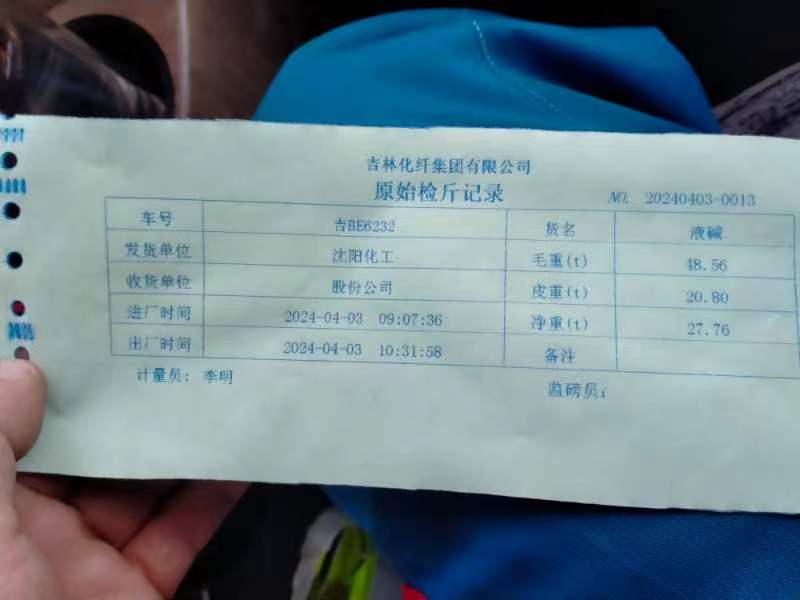 吉林化纤集团有限公司
原始检斤记录
NO. 20240403-0013
车号 吉BE6232 货名 液碱
发货单位 沈阳化工 毛重(t) 48.56
收货单位 股份公司 皮重(t) 20.80
进厂时间 2024-04-03 09:07:36 净重(t) 27.76
出厂时间 2024-04-03 10:31:58 备注
计量员: 李明 监磅员: